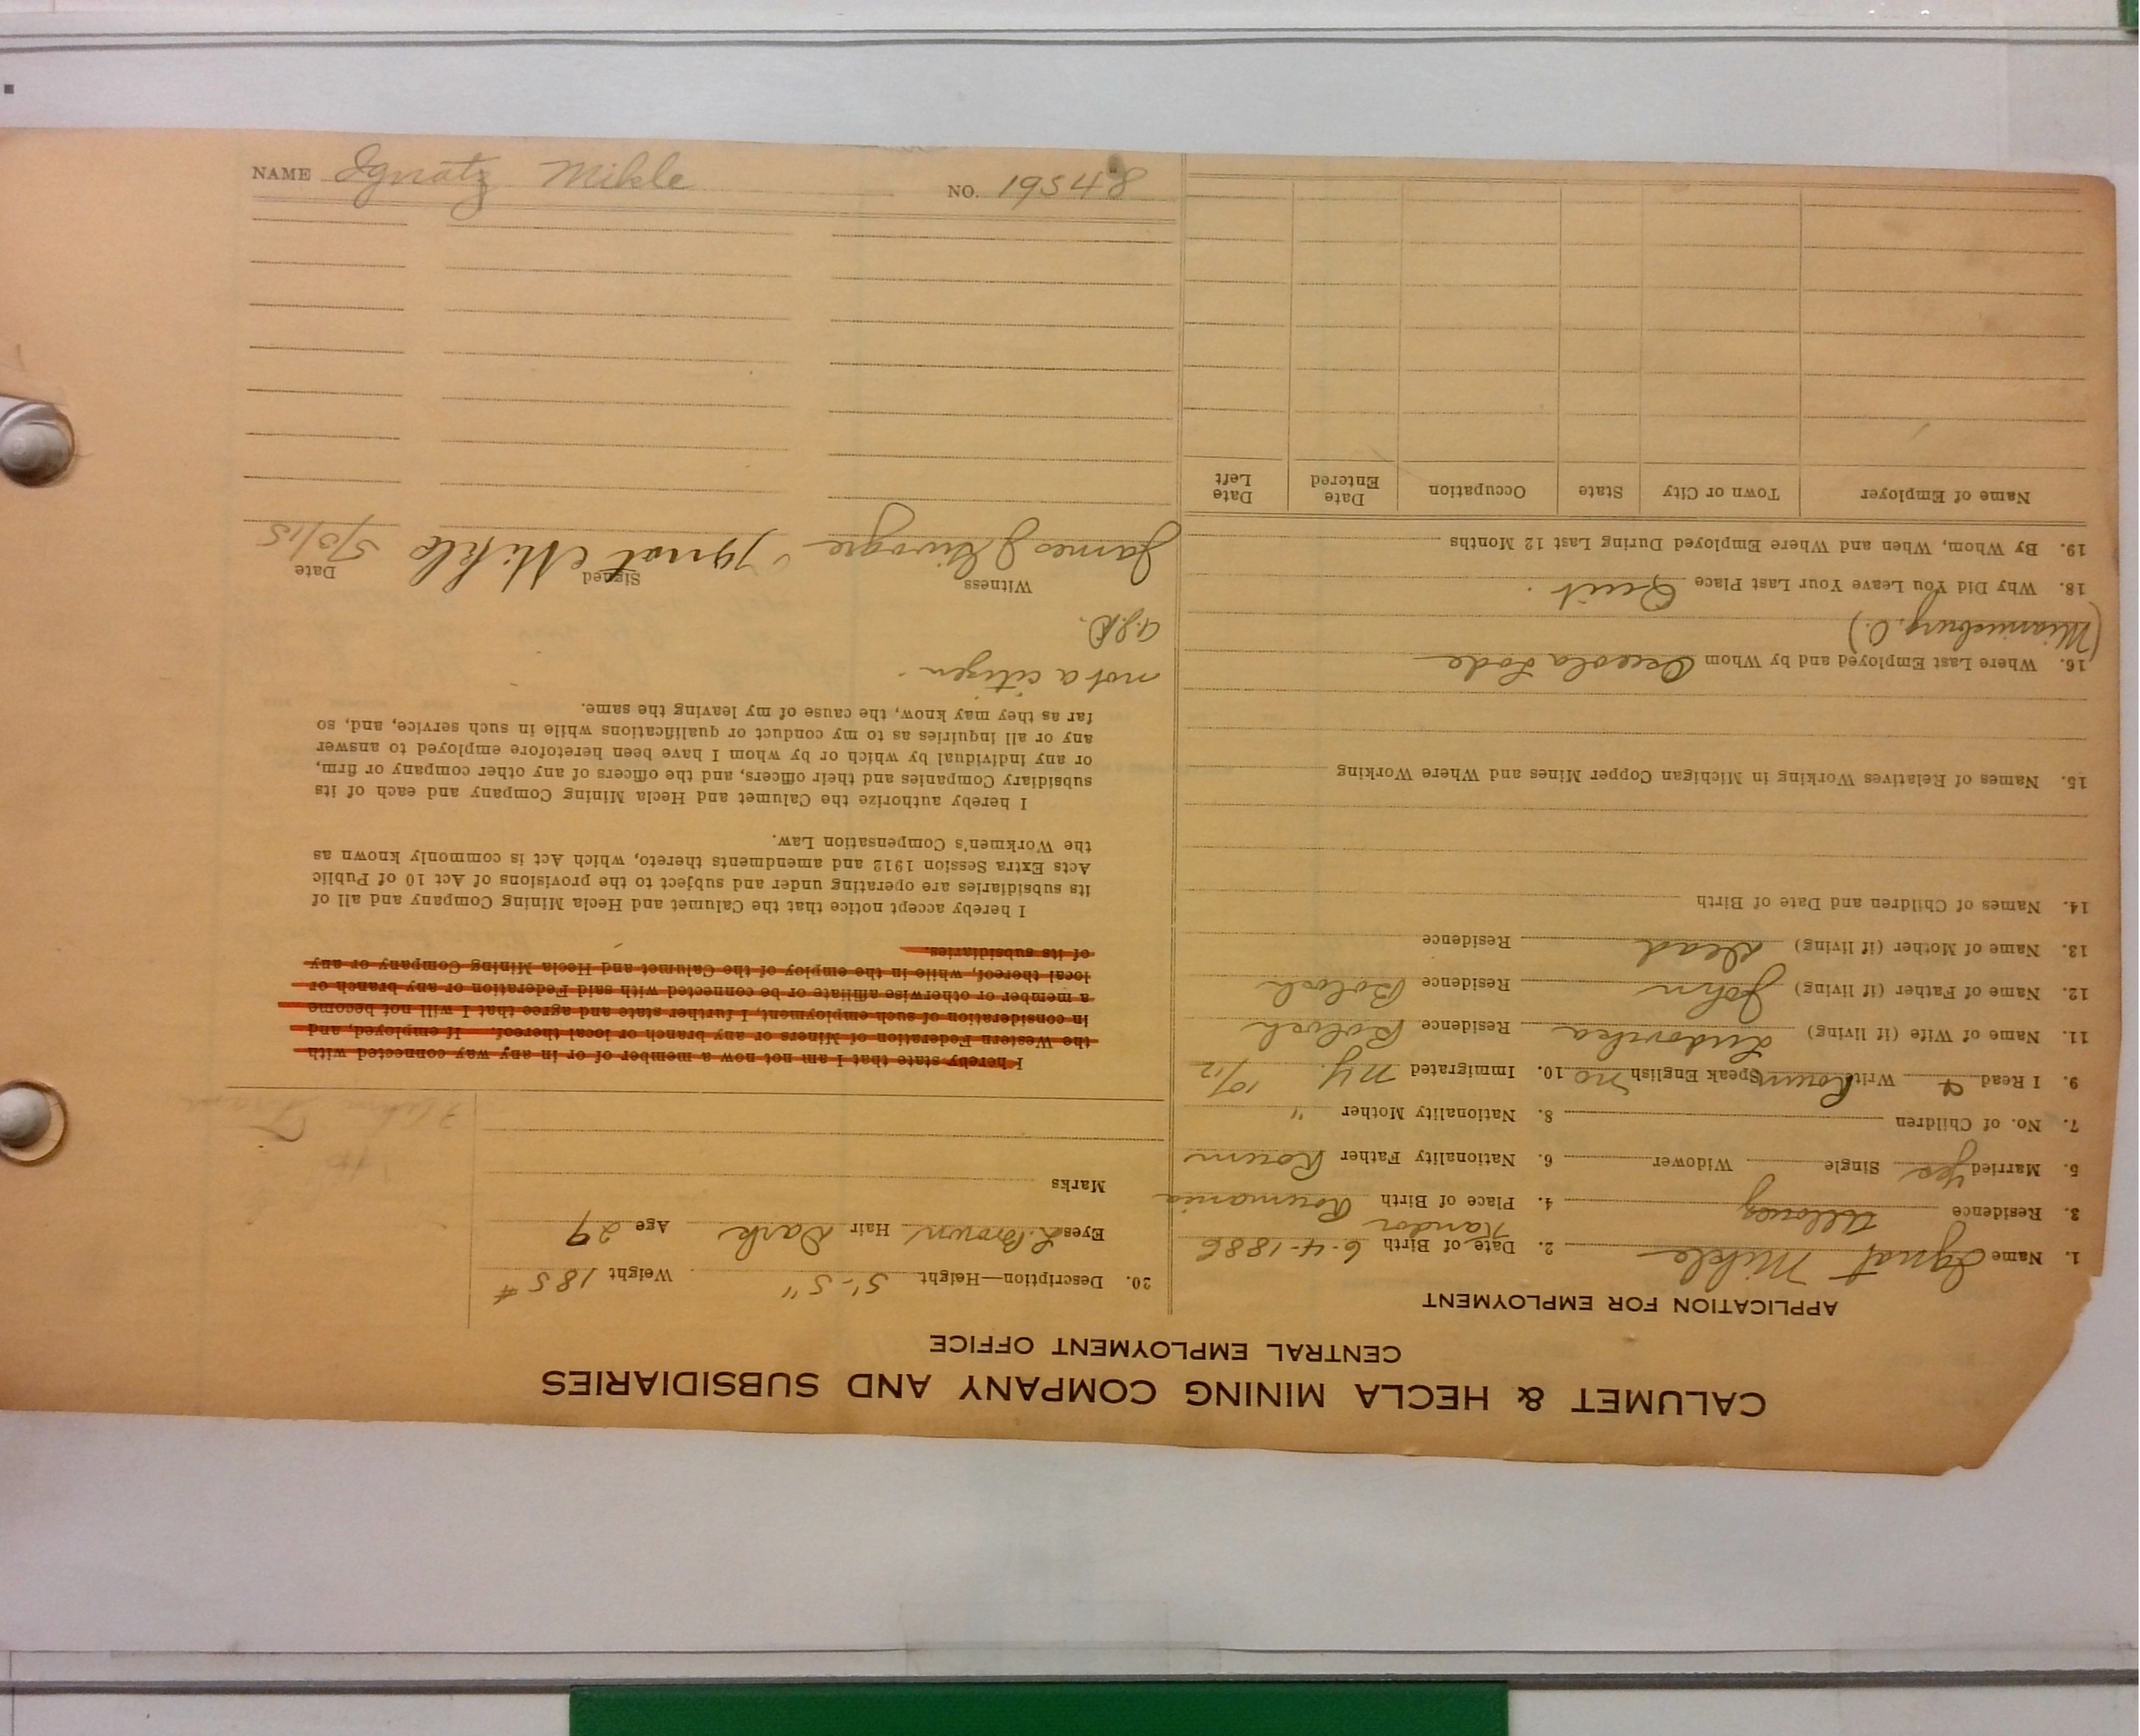 CALUMET & HECLA MINING COMPANY AND SUBSIDIARIES
CENTRAL EMPLOYMENT OFFICE
APPLICATION FOR EMPLOYMENT
1. Name Ignat Mikle 2. Date of Birth 6-4-1886
3. Residence Allouez 4. Place of Birth Nandor Roumania
5. Married Yes Single Widower 6. Nationality Father Roum
7. No. of Children 8. Nationality Mother "
9. I Read & Write Roum Speak English no 10. Immigrated N.Y. 10/12
11. Name of Wife (if living) Ludovika Residence
12. Name of Father (if living) John Residence
13. Name of Mother (if living) Dead Residence
14. Names of Children and Date of Birth
15. Names of Relatives Working in Michigan Copper Mines and Where Working
16. Where Last Employed and by Whom Osceola Lode
(Miamisburg, O.)
18. Why Did You Leave Your Last Place Quit.
19. By Whom, When and Where Employed During Last 12 Months
Name of Employer Town or City State Occupation Date Entered Date Left
20. Description—Height 5'-5" Weight 185#
Eyes L. Brown Hair Dark Age 29
Marks
I hereby state that I am not now a member of or in any way connected with
the Western Federation of Miners or any branch or local thereof. If employed, and
in consideration of such employment, I further state and agree that I will not become
a member or otherwise affiliate or be connected with said Federation or any branch or
local thereof, while in the employ of the Calumet and Hecla Mining Company or any
of its subsidiaries.
I hereby accept notice that the Calumet and Hecla Mining Company and all of
its subsidiaries are operating under and subject to the provisions of Act 10 of Public
Acts Extra Session 1912 and amendments thereto, which Act is commonly known as
the Workmen's Compensation Law.
I hereby authorize the Calumet and Hecla Mining Company and each of its
subsidiary Companies and their officers, and the officers of any other company or firm,
or any individual by which or by whom I have been heretofore employed to answer
any or all inquiries as to my conduct or qualifications while in such service, and, so
far as they may know, the cause of my leaving the same.
not a citizen.
Witness Signed Date
James Ignat Mikle
NAME Ignatz Mikle NO. 19548